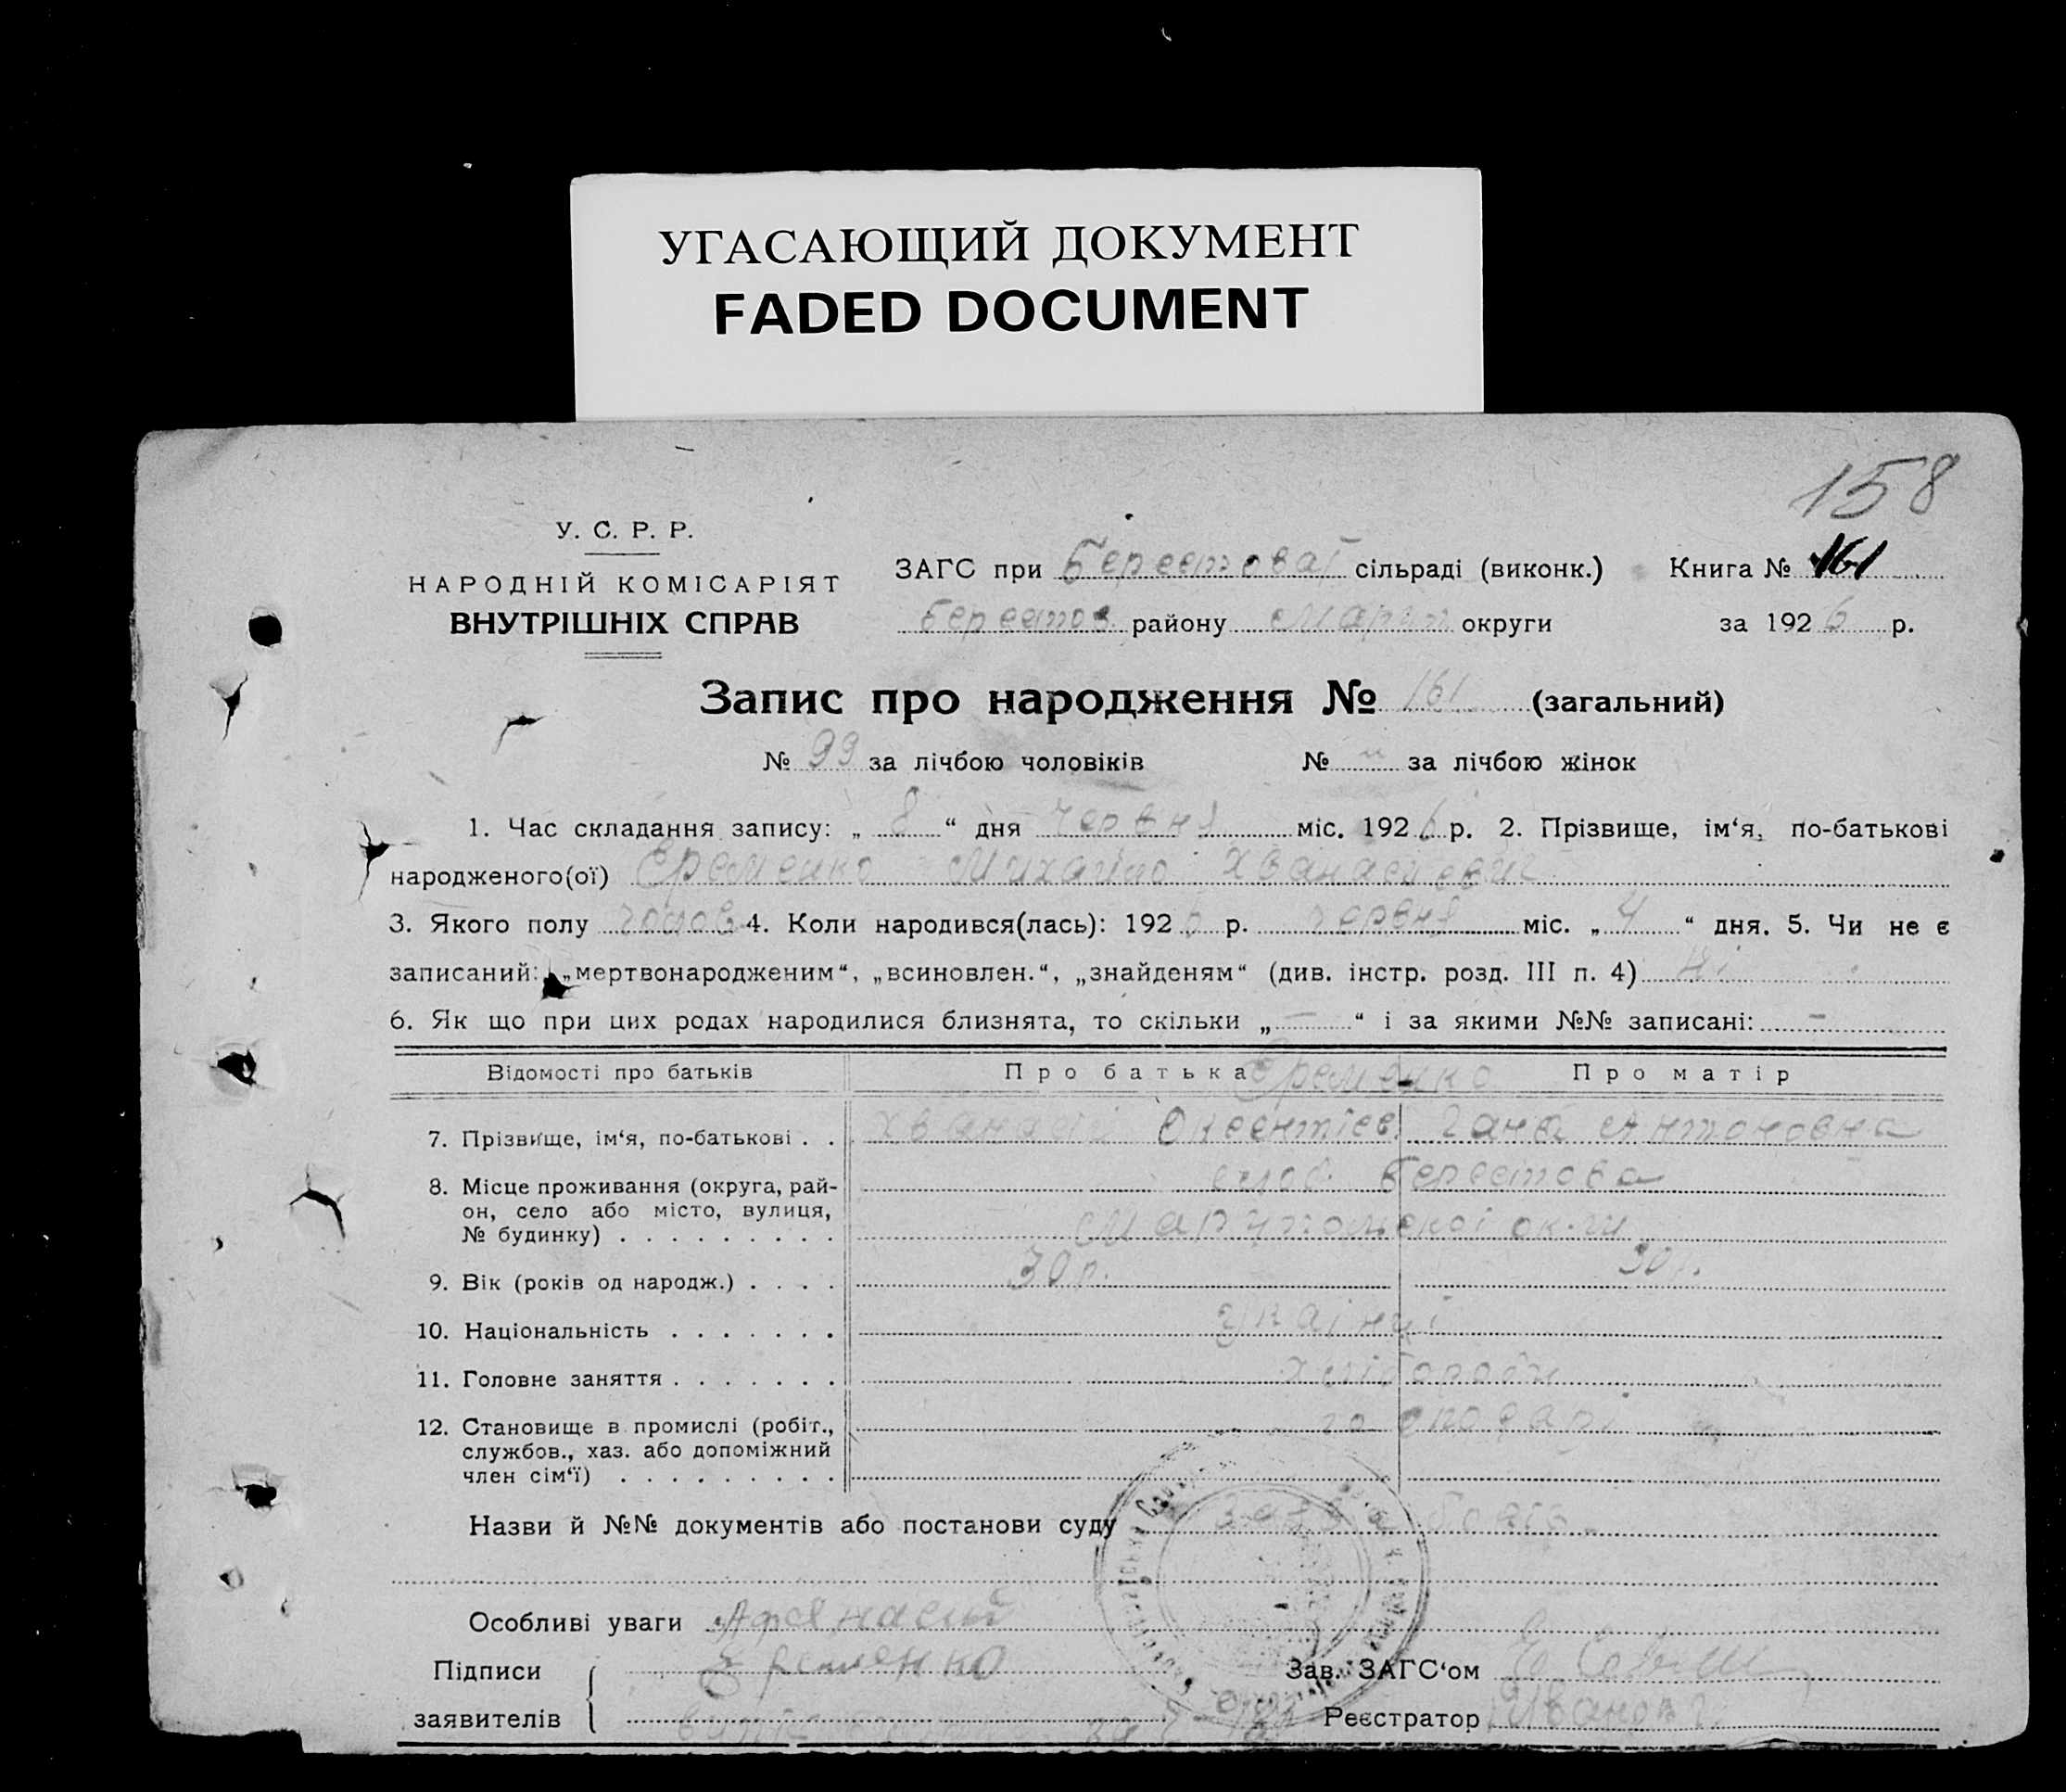 УГАСАЮЩИЙ ДОКУМЕНТ
FADED DOCUMENT
158
У. С. Р. Р.
НАРОДНІЙ КОМІСАРІЯТ
ВНУТРІШНІХ СПРАВ
ЗАГС при Берестоваї сільраді (виконк.) Книга № 161
Берестов району Маріп округи за 1926 р.
Запис про народження № 161 (загальний)
№ 99 за лічбою чоловіків № " за лічбою жінок
1. Час складання запису: „ 8 “ дня червня міс. 1926 р. 2. Прізвище, ім‘я, по-батькові
народженого(ої) Єременко Михайло Хванасиєвич
3. Якого полу чолов 4. Коли народився(лась): 1926 р. червня міс. „ 4 “ дня. 5. Чи не є
записаний: „мертвонародженим“, „всиновлен.“, „знайденям“ (див. інстр. розд. III п. 4) Ні
6. Як що при цих родах народилися близнята, то скільки „ — “ і за якими №№ записані: —
Відомості про батьків Про батька Єременко Про матір
7. Прізвище, ім‘я, по-батькові . . Хванасій Оксентієв Ганна Антоновна
8. Місце проживання (округа, рай-
он, село або місто, вулиця,
№ будинку) . . . . . . . . .
слоб. Берестова
Маріупольскої ок-ги
9. Вік (років од народж.) . . . . 30 р. 30 р.
10. Національність . . . . . . . українці
11. Головне заняття . . . . . . . хлібороби
12. Становище в промислі (робіт.,
службов., хаз. або допоміжний
член сім‘ї) . . . . . . . . .
господарі
Назви й №№ документів або постанови суду заява
Особливі уваги Афанасий
Підписи
заявителів
Єременко
Зав. ЗАГС‘ом
Реєстратор Иванов